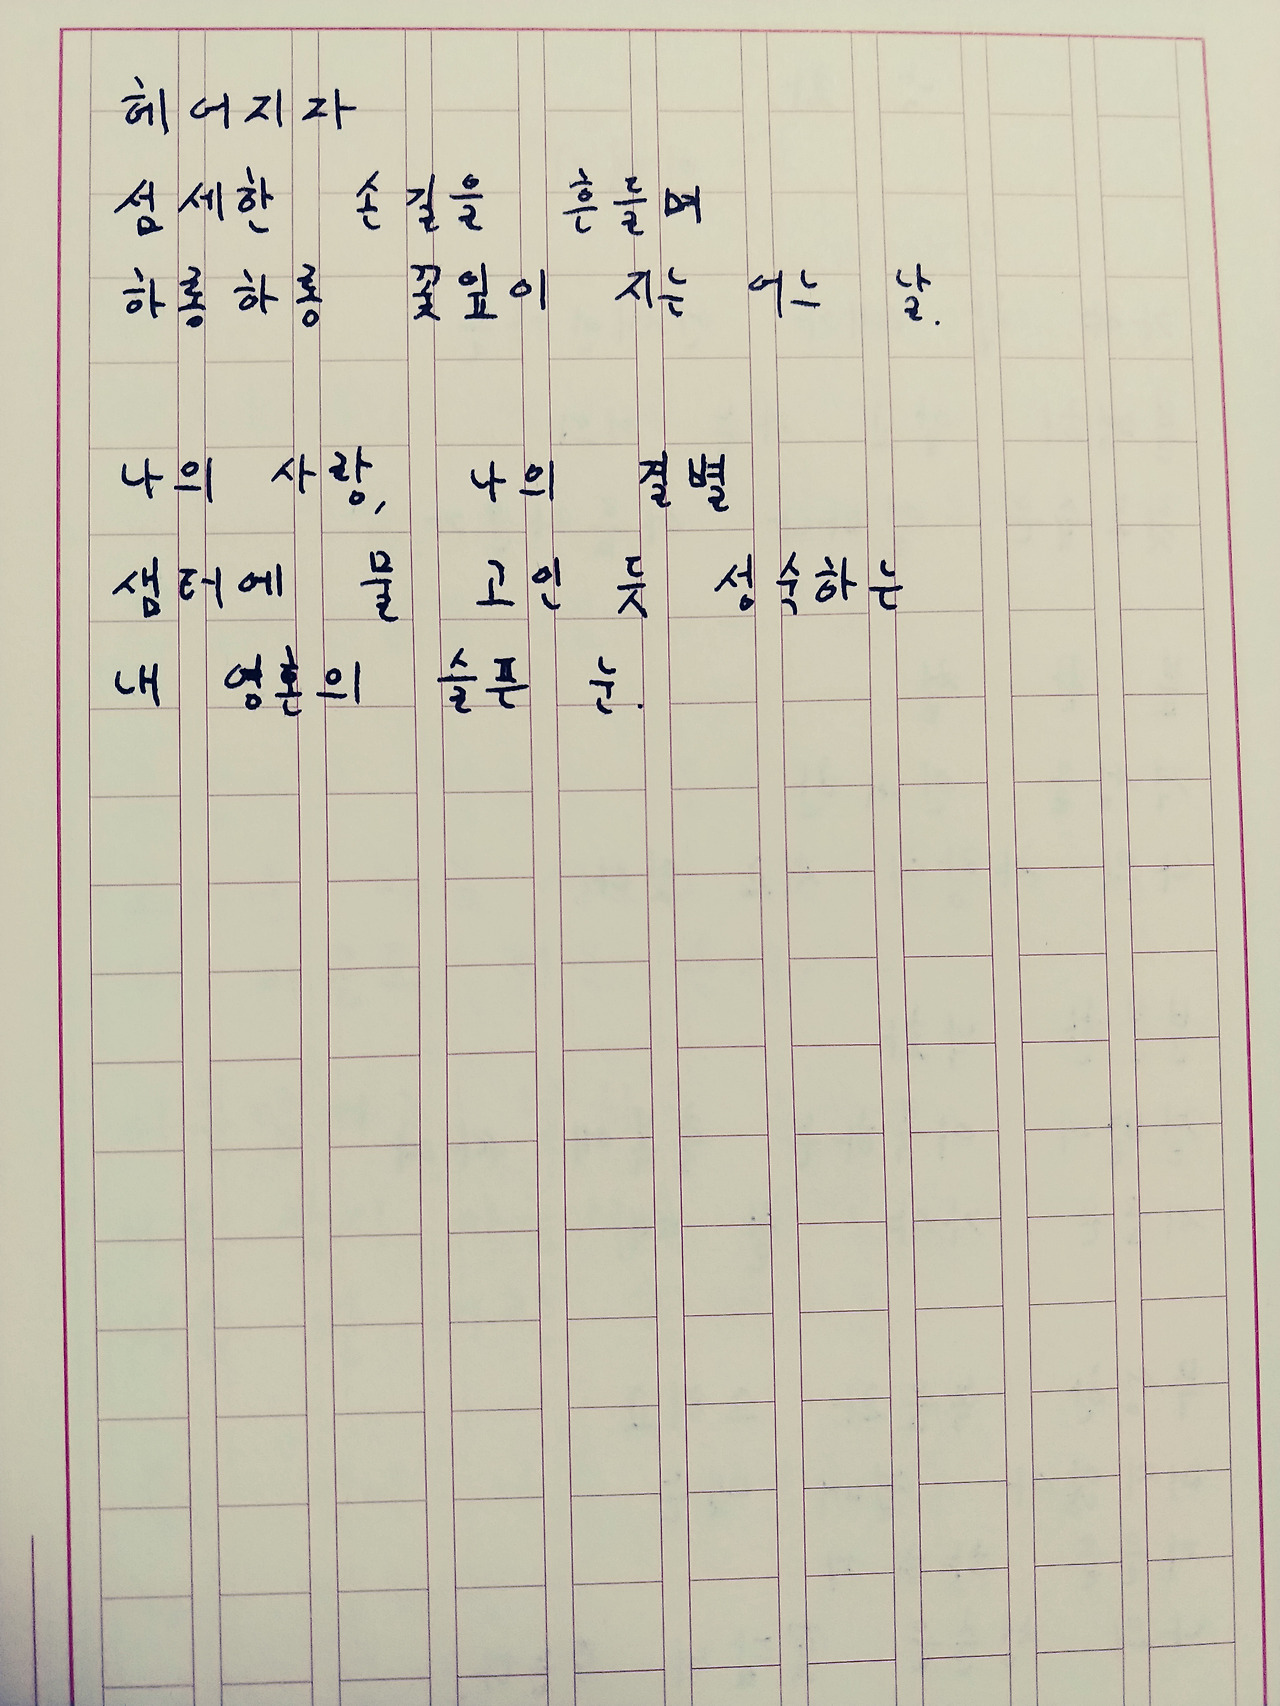 헤어지자
섬세한 손길을 흔들며
하롱하롱 꽃잎이 지는 어느 날.
나의 사랑, 나의 결별
샘터에 물 고인 듯 성숙하는
내 영혼의 슬픈 눈.